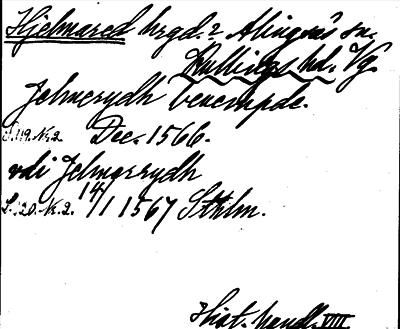 Hjelmared hrgd. i Alingsås sn.
Kullings hd. Vg.
Jelmerydh benempde.
S. 119. Nr. 2 Dec. 1566.
vdi Jelmerrydh
S. 120. Nr. 2. 14/1 1567 Sthlm.
Hist. handl. VIII